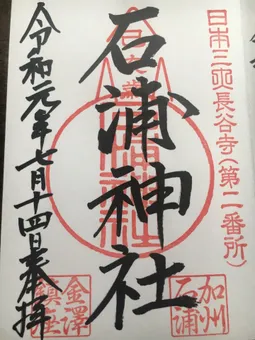 日本三所長谷寺(第二番所)
石浦神社
加州
石浦
金澤
鎮座
令和元年七月十四日奉拝